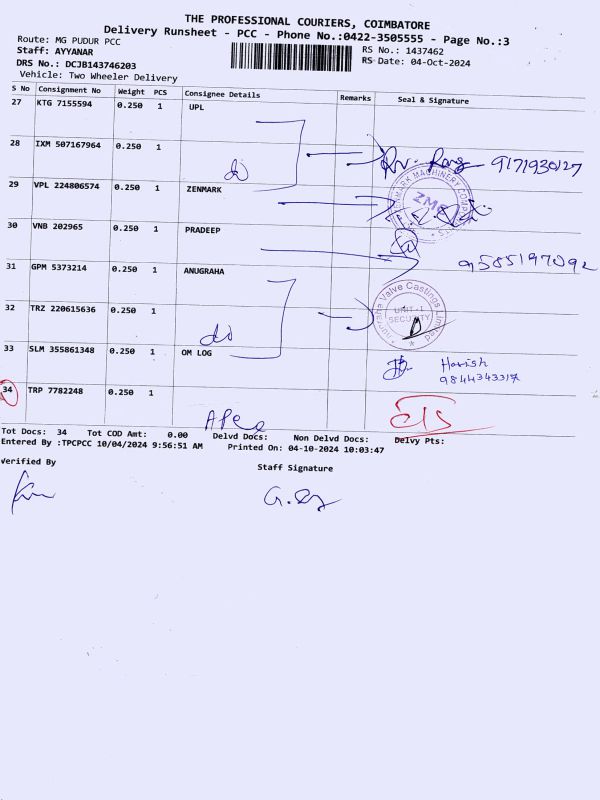 THE PROFESSIONAL COURIERS, COIMBATORE
Delivery Runsheet - PCC - Phone No.:0422-3505555 - Page No.:3
Route: MG PUDUR PCC
RS No.: 1437462
Staff: AYYANAR
RS Date: 04-Oct-2024
DRS No.: DCJB143746203
Vehicle: Two Wheeler Delivery
S No Consignment No Weight PCS Consignee Details Remarks Seal & Signature
27 KTG 7155594 0.250 1 UPL
28 IXM 507167964 0.250 1 do 9171930127
29 VPL 224806574 0.250 1 ZENMARK
30 VNB 202965 0.250 1 PRADEEP
9585197092
31 GPM 5373214 0.250 1 ANUGRAHA
32 TRZ 220615636 0.250 1 do UNIT-I SECURITY
33 SLM 355861348 0.250 1 OM LOG Harish
9844343317
34 TRP 7782248 0.250 1
Tot Docs: 34 Tot COD Amt: 0.00 Delvd Docs: Non Delvd Docs: Delvy Pts:
Entered By :TPCPCC 10/04/2024 9:56:51 AM Printed On: 04-10-2024 10:03:47
Verified By
Staff Signature